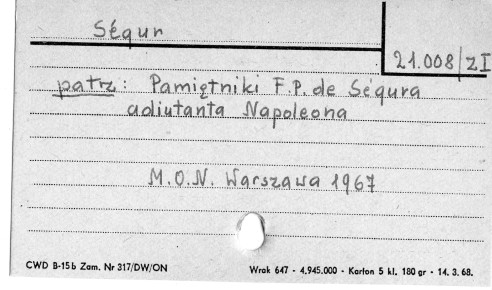 Ségur
21.008/zI
patrz: Pamiętniki F.P. de Ségura
adiutanta Napoleona
M.O.N. Warszawa 1967
CWD B-15b Zam. Nr 317/DW/ON
Wrak 647 - 4.945.000 - Karton 5 kl. 180 gr - 14. 3. 68.